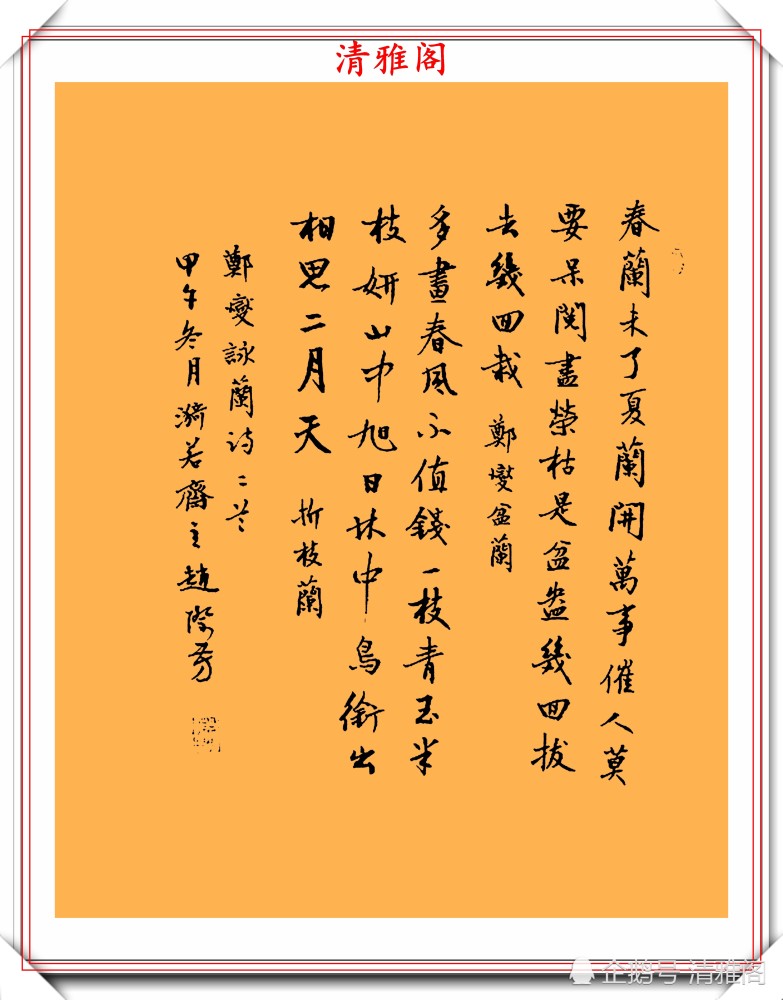 清雅阁
春蘭未了夏蘭開萬事催人莫
要呆閱盡榮枯是盆盎幾回拔
去幾回栽 鄭燮盆蘭
多畫春風不值錢一枝青玉半
枝妍山中旭日林中鳥銜出
相思二月天 折枝蘭
鄭燮詠蘭詩二首
甲午冬月漪若齋主趙際芳
企鹅号 清雅阁